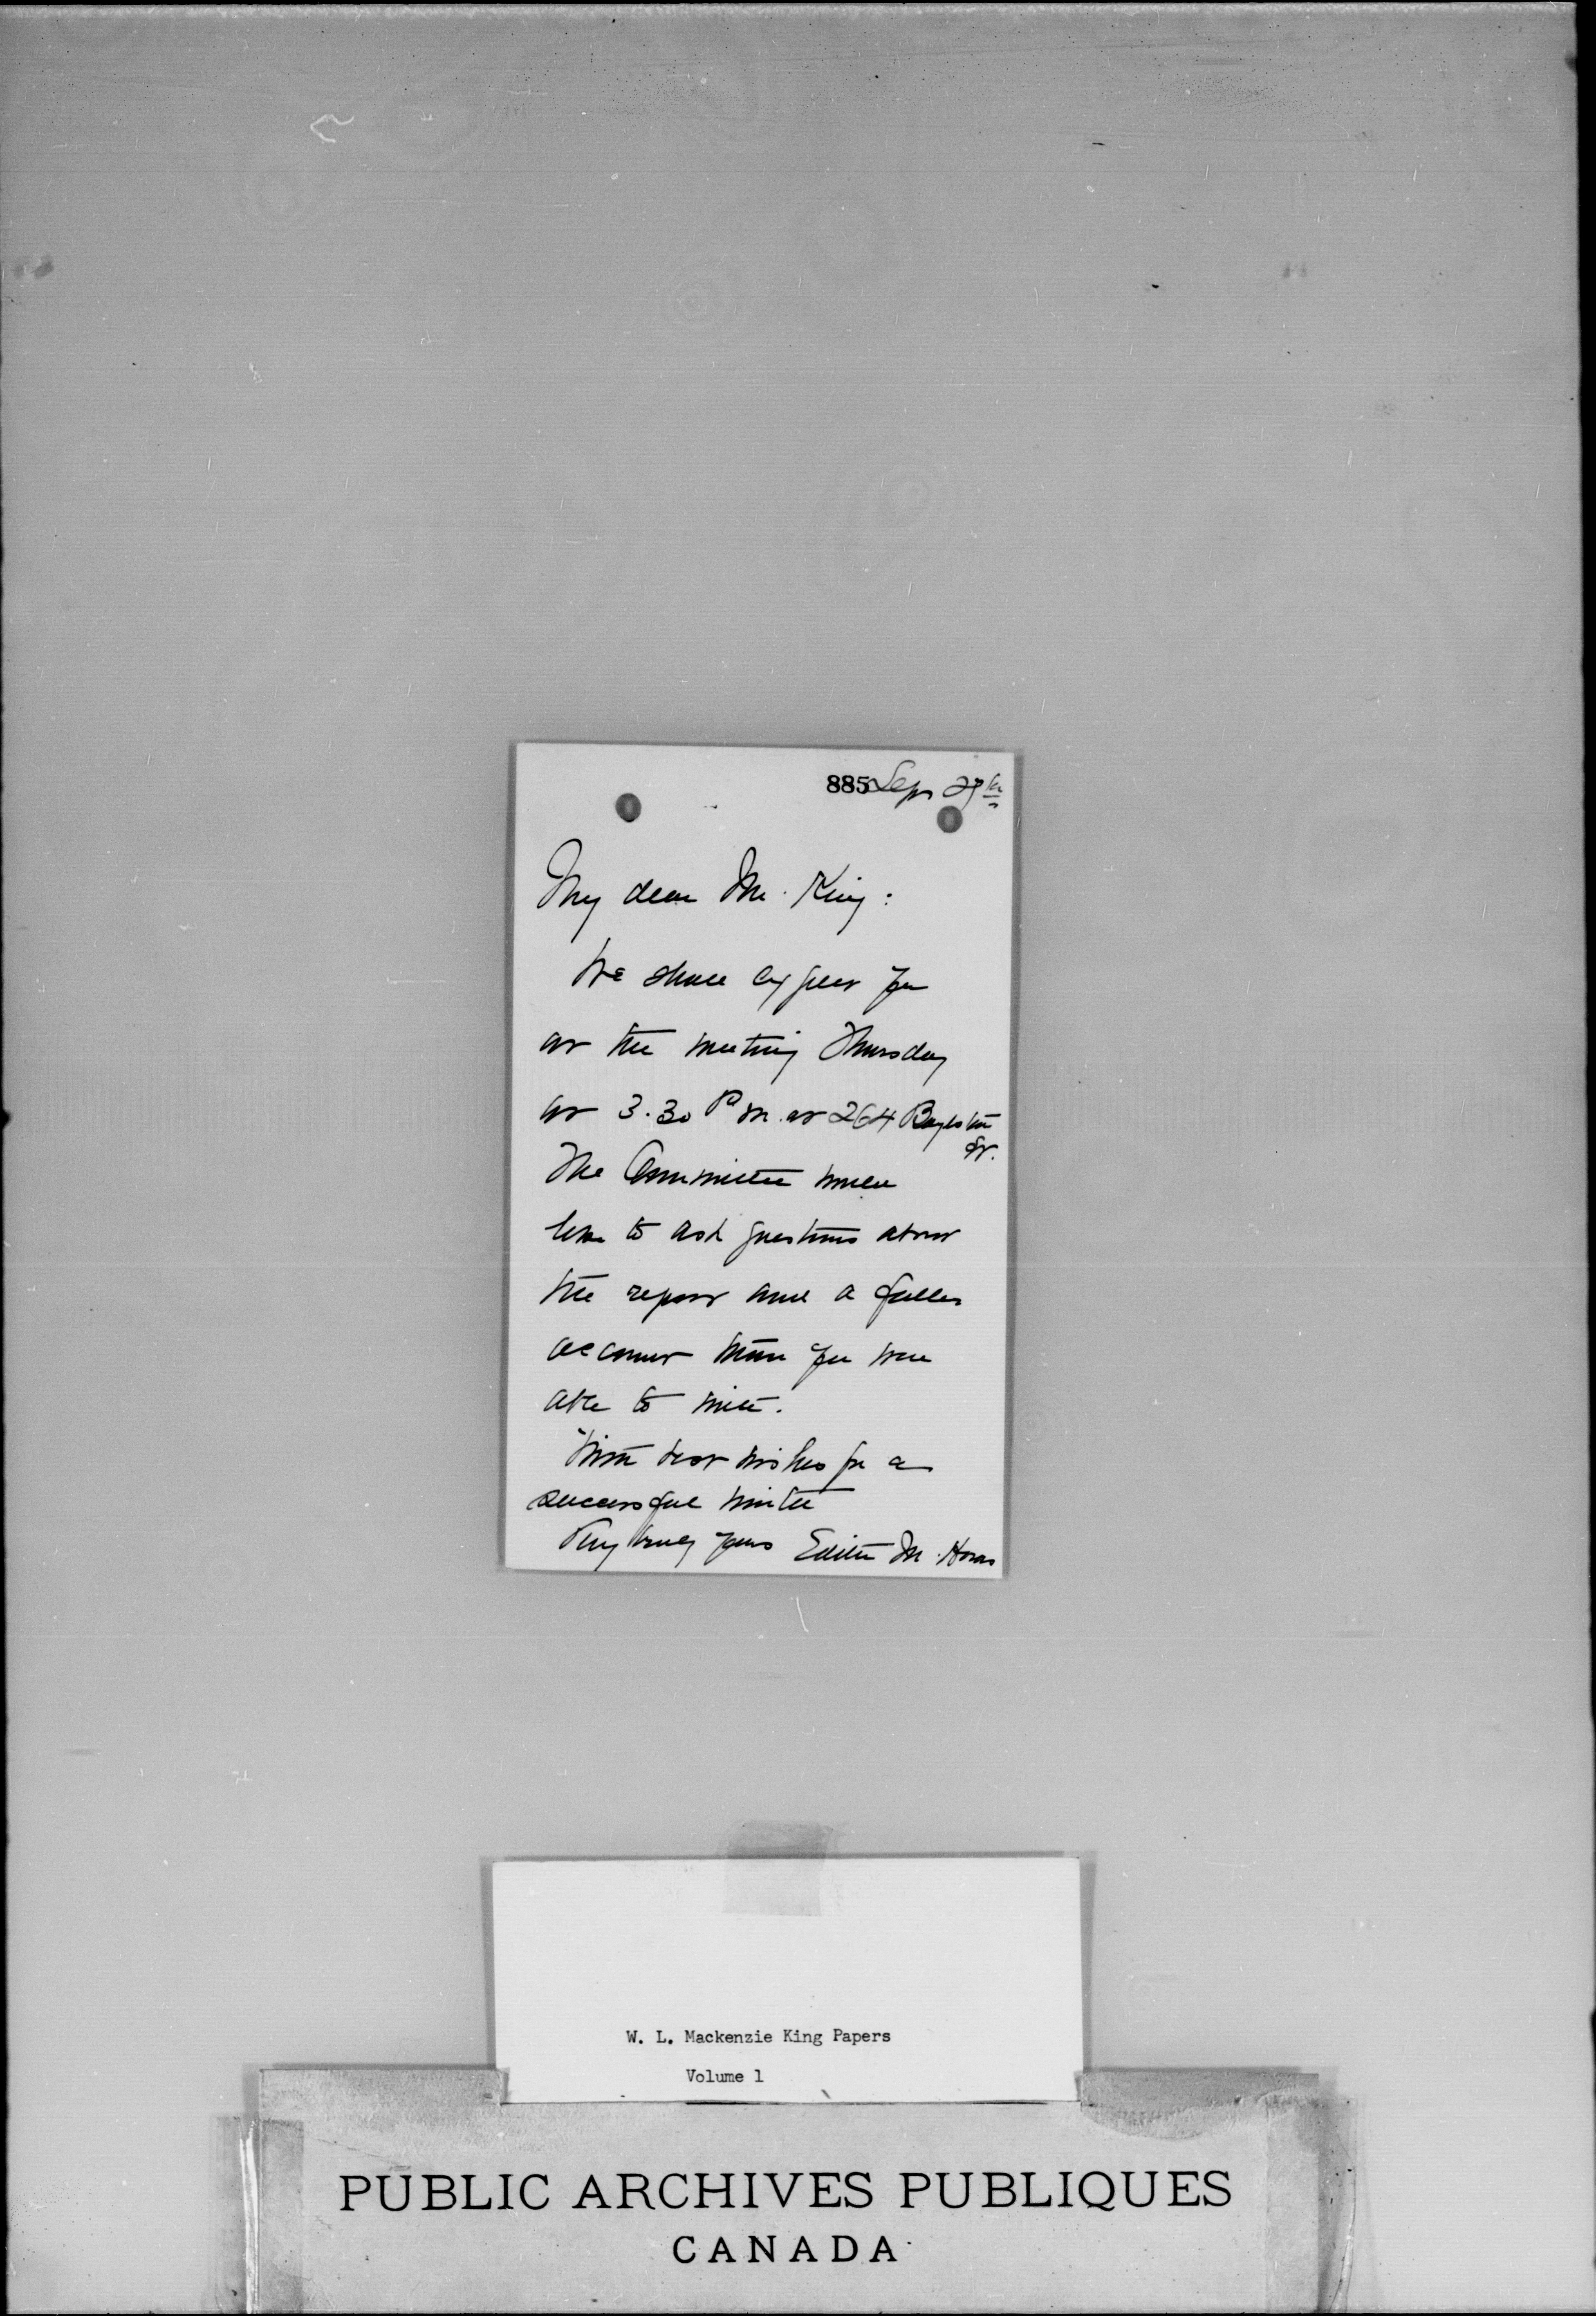 885 Sept 27th
My dear Mr. King:
We shall expect you
at the meeting Thursday
at 3.30 P.M. at 264 Boylston
St.
The Committee would
like to ask questions about
the report and a fuller
account than you were
able to write.
With best wishes for a
successful winter
Very truly yours Edith M. Howes
W. L. Mackenzie King Papers
Volume 1
PUBLIC ARCHIVES PUBLIQUES
CANADA